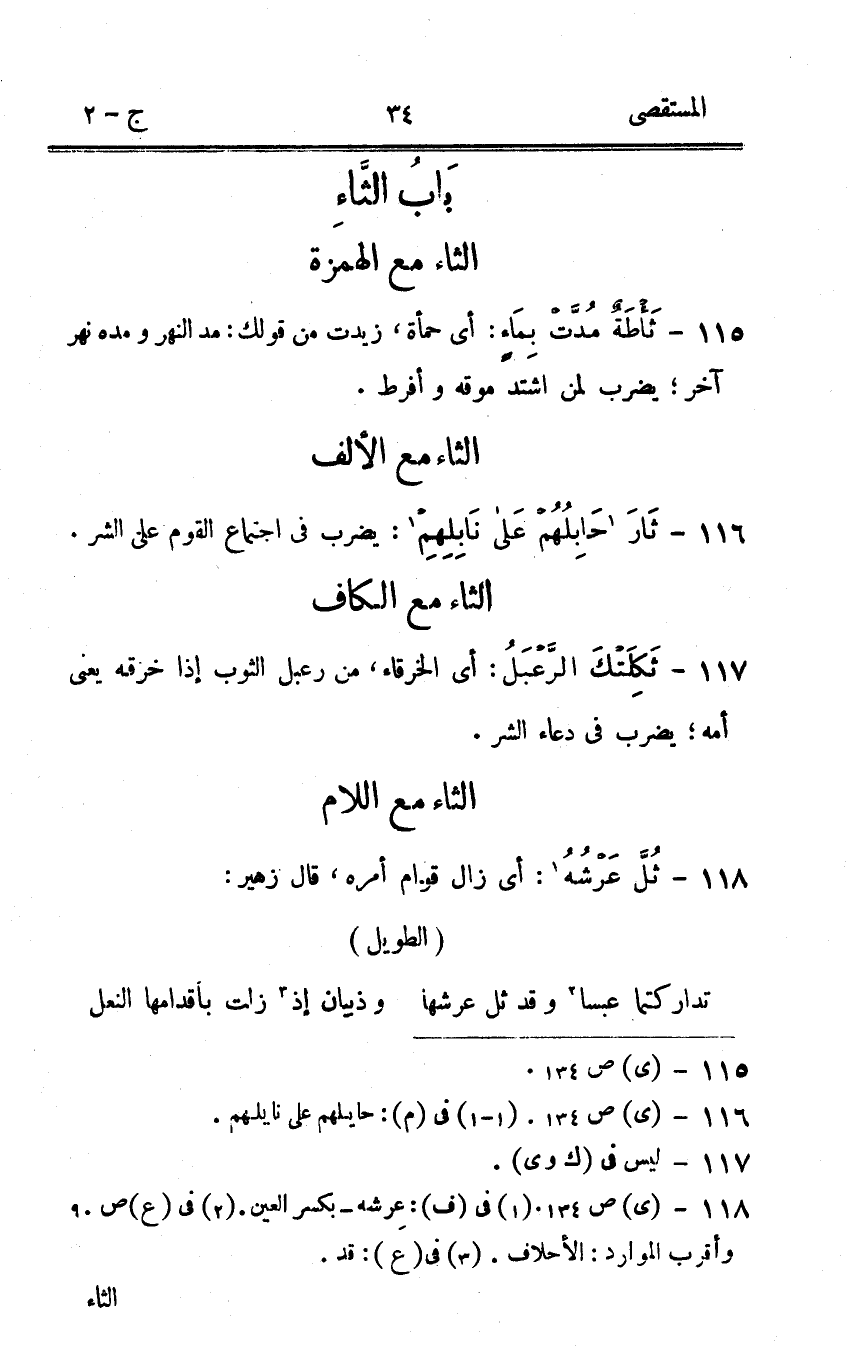 المستقصى ٣٤ ج – ٢
بَابُ الثَّاءِ
الثاء مع الهمزة
١١٥ – ثَأْطَةٌ مُدَّتْ بِمَاءٍ: أى حمأة، زيدت من قولك: مد النهر و مده نهر
آخر؛ يضرب لمن اشتد موقه و أفرط .
الثاء مع الألف
١١٦ – ثَارَ ١حَابِلُهُمْ عَلىٰ نَابِلِهِمْ١: يضرب فى اجتماع القوم على الشر .
الثاء مع الكاف
١١٧ – ثَكِلَتْكَ الرَّعْبَلُ: أى الخرقاء، من رعبل الثوب إذا خزقه يعنى
أمه؛ يضرب فى دعاء الشر .
الثاء مع اللام
١١٨ – ثُلَّ عَرْشُهُ١: أى زال قوام أمره، قال زهير:
(الطويل)
تداركتما عبسا٢ و قد ثل عرشها و ذبيان إذ٣ زلت بأقدامها النعل
١١٥ – (ى) ص ١٣٤ .
١١٦ – (ى) ص ١٣٤ . (١–١) فى (م): حايلهم على نايلهم .
١١٧ – ليس فى (ك و ى) .
١١٨ – (ى) ص ١٣٤.(١) فى (ف): عِرشه – بكسر العين.(٢) فى (ع) ص ٩٠
وأقرب الموارد: الأحلاف . (٣) فى (ع): قد .
الثاء